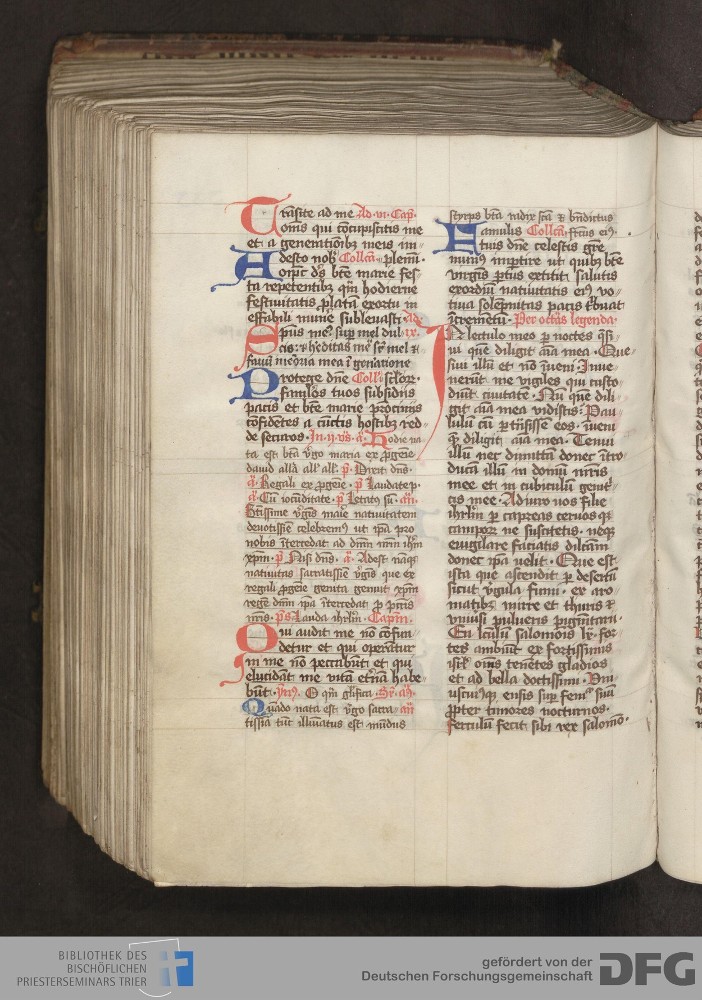 Trãsite ad me Ad·vi·Cap̃·
om̃s qui cõcupiscitis me
et a generationibꝫ meis im
Adesto nob̃ Collc̃a plemi·
om̃pc̃ ds̃ bt̃e marie fes
ta repetentibꝫ qm̃ hodierne
festiuitatis plata exortu in
effabili munĩe subleuasti ad
Spũs me9 sup̃ mel dul ix·
cis: ⁊ h̃editas me sr̃ mel ⁊
fauũ memoria mea ĩ gen̾atione
Protege dñe Coll·
famlos tuos subsidiis
pacis et bt̃e marie
cõfidẽtes a cũctis hostibꝫ red
de securos· In·ij·vs̃·a· Hodie na
ta est bt̃a ṽgo maria ex ꝓgeĩe
dauid all̃a all̃ all̃· p̃· Dixit dñs·
a· Regali ex ꝓgeĩe· p̃ Laudate p·
a· Cũ iocũditate· p̃ Letat9 sũ· añ·
ṽgĩs maĩe natiuitatem
deuotissĩe celebrem9 ut ip̃a pro
nobis ĩtercedat ad dñm nrm̃ ih̃m
xp̃m· p̃ Nisi dñs· a· Adest nãqꝫ
natiuitas sacratissĩe ṽgĩs que ex
regali ꝓgeĩe genita genuit xp̃m
regẽ dñm ip̃a ĩtercedat p̃ p̃ctis
nr̃is· p̃s Lauda ihrlm̃· Capm̃·
Qui audit me nõ cõfun
detur et qui operãtur
in me nõ peccabũt et qui
elucidãt me vitã et̾nã habe
bũt· O qm̃ gl̃ifica
Quãdo nata est ṽgo sacra añ
tissĩa tũc illũinatus est mũdus
styrps bt̃a radix sc̃a ⁊ bñdictus
Famulis Collc̃a fruct9 ei9·
tuis dñe celestis gr̃e
mun9 impẽtire ut quibꝫ bt̃e
virgĩs p̃tus extitit salutis
exordiũ natiuitatis ei9 vo
tiua solẽpnitas pacis t̾buat
ĩcremẽtũ· Per octãs legenda·
In lectulo meo p̃ noctes q̃si
ui que diligit aĩa mea· Que
siui illũ et nõ ĩueni· Inue
nerũt me vigiles qui custo
diũt ciuitatẽ· Nũ quẽ dili
git aĩa mea vidistis· Pau
lulũ cũ p̃trãsissẽ eos· ĩueni
q̃ diligit aĩa mea· Tenui
illũ nec dimittã donec ĩtro
ducã illũ in domũ mr̃is
mee et in cubiculũ genit̾
cis mee· Adiuro uos filie
ihrlm̃ p̃ capreas ceruosqꝫ
camporꝫ ne suscitetis· neqꝫ
euigilare faciatis dilc̃am
donec ip̃a uelit· Que est
ista que ascendit p̃ desertũ
sicut ṽgula fumi· ex aro
matibꝫ mirre et thuris ⁊
vniuersi pulueris pigmẽtarii·
En lc̃ulũ salomõis lx· for
tes ambiũt ex fortissimis
isrl̃ om̃s tenẽtes gladios
et ad bella doctissimi· Vni
uscui9qꝫ ensis sup̃ fem9 suũ
ꝓpter timores nocturnos·
ferculũ fecit sibi rex salomõ·
BIBLIOTHEK DES
BISCHÖFLICHEN
PRIESTERSEMINARS TRIER
gefördert von der
Deutschen Forschungsgemeinschaft
DFG